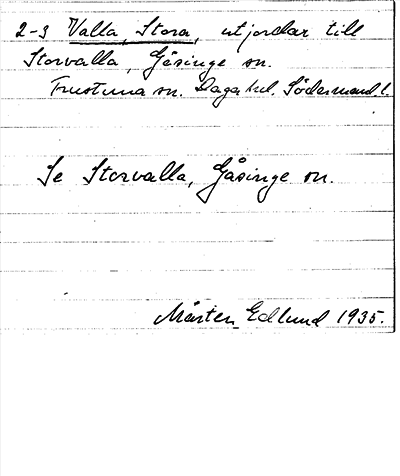 2-3 Valla, Stora, utjordar till
Storvalla, Gåsinge sn.
Frustuna sn. Daga hd. Södermanl l.
Se Storvalla, Gåsinge sn.
Mårten Edlund 1935.